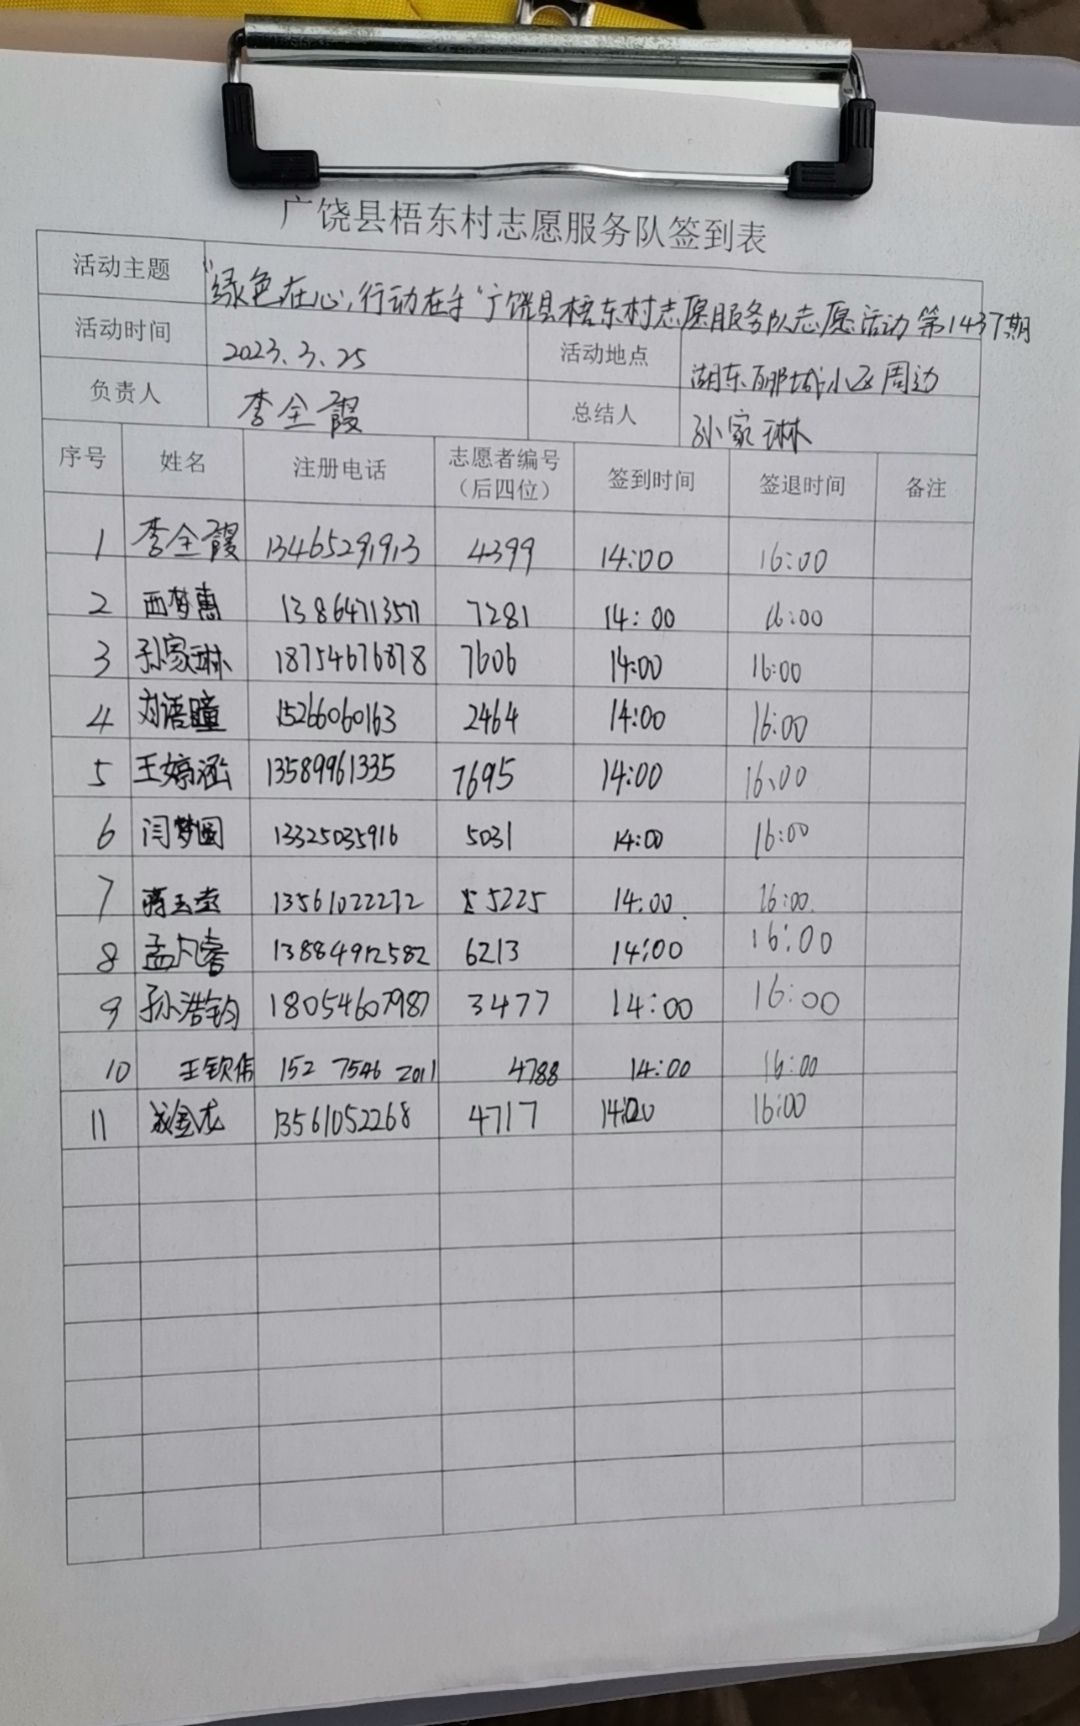 广饶县梧东村志愿服务队签到表
活动主题 "绿色在心,行动在手"广饶县梧东村志愿服务队志愿活动第1437期
活动时间 2023.3.25 活动地点 湖东丽城小区周边
负责人 李全霞 总结人 孙家琳
序号 姓名 注册电话 志愿者编号（后四位） 签到时间 签退时间 备注
1 李全霞 13465291913 4399 14:00 16:00
2 西梦惠 13864713571 7281 14:00 16:00
3 孙家琳 18754676878 7606 14:00 16:00
4 刘语瞳 15266060163 2464 14:00 16:00
5 王婷涵 13589961335 7695 14:00 16:00
6 闫梦圆 13325035916 5031 14:00 16:00
7 蒋玉 13561022272 5225 14:00 16:00
8 孟凡睿 13884912582 6213 14:00 16:00
9 孙浩钧 18054607987 3477 14:00 16:00
10 王钦伟 152 7546 2011 4788 14:00 16:00
11 金龙 13561052268 4717 14:00 16:00